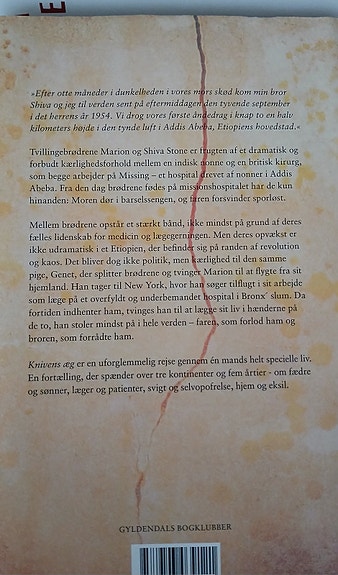 »Efter otte måneder i dunkelheden i vores mors skød kom min bror
Shiva og jeg til verden sent på eftermiddagen den tyvende september
i det herrens år 1954. Vi drog vores første åndedrag i knap to en halv
kilometers højde i den tynde luft i Addis Abeba, Etiopiens hovedstad.«
Tvillingebrødrene Marion og Shiva Stone er frugten af et dramatisk og
forbudt kærlighedsforhold mellem en indisk nonne og en britisk kirurg,
som begge arbejder på Missing – et hospital drevet af nonner i Addis
Abeba. Fra den dag brødrene fødes på missionshospitalet har de kun
hinanden: Moren dør i barselssengen, og faren forsvinder sporløst.
Mellem brødrene opstår et stærkt bånd, ikke mindst på grund af deres
fælles lidenskab for medicin og lægegerningen. Men deres opvækst er
ikke udramatisk i et Etiopien, der befinder sig på randen af revolution
og kaos. Det bliver dog ikke politik, men kærlighed til den samme
pige, Genet, der splitter brødrene og tvinger Marion til at flygte fra sit
hjemland. Han tager til New York, hvor han søger tilflugt i sit arbejde
som læge på et overfyldt og underbemandet hospital i Bronx' slum. Da
fortiden indhenter ham, tvinges han til at lægge sit liv i hænderne på
de to, han stoler mindst på i hele verden – faren, som forlod ham og
broren, som forrådte ham.
Knivens æg er en uforglemmelig rejse gennem én mands helt specielle liv.
En fortælling, der spænder over tre kontinenter og fem årtier - om fædre
og sønner, læger og patienter, svigt og selvopofrelse, hjem og eksil.
GYLDENDALS BOGKLUBBER